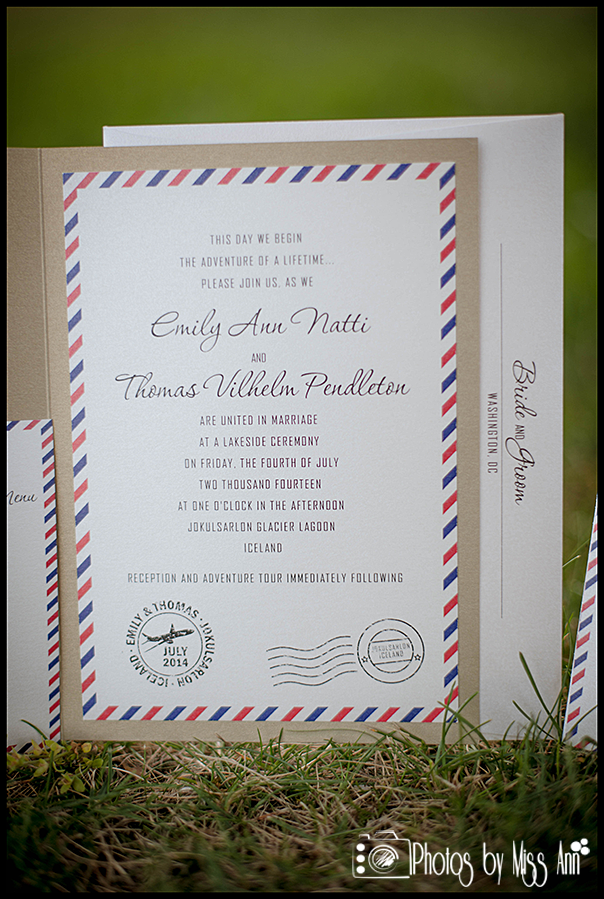 THIS DAY WE BEGIN
THE ADVENTURE OF A LIFETIME...
PLEASE JOIN US, AS WE
Emily Ann Natti
AND
Thomas Vilhelm Pendleton
ARE UNITED IN MARRIAGE
AT A LAKESIDE CEREMONY
ON FRIDAY, THE FOURTH OF JULY
TWO THOUSAND FOURTEEN
AT ONE O'CLOCK IN THE AFTERNOON
JOKULSARLON GLACIER LAGOON
ICELAND
RECEPTION AND ADVENTURE TOUR IMMEDIATELY FOLLOWING
EMILY & THOMAS · JOKULSARLON · ICELAND ·
JULY
2014
JOKULSARLON
ICELAND
Menu
Bride AND Groom
WASHINGTON, DC
Photos by Miss Ann